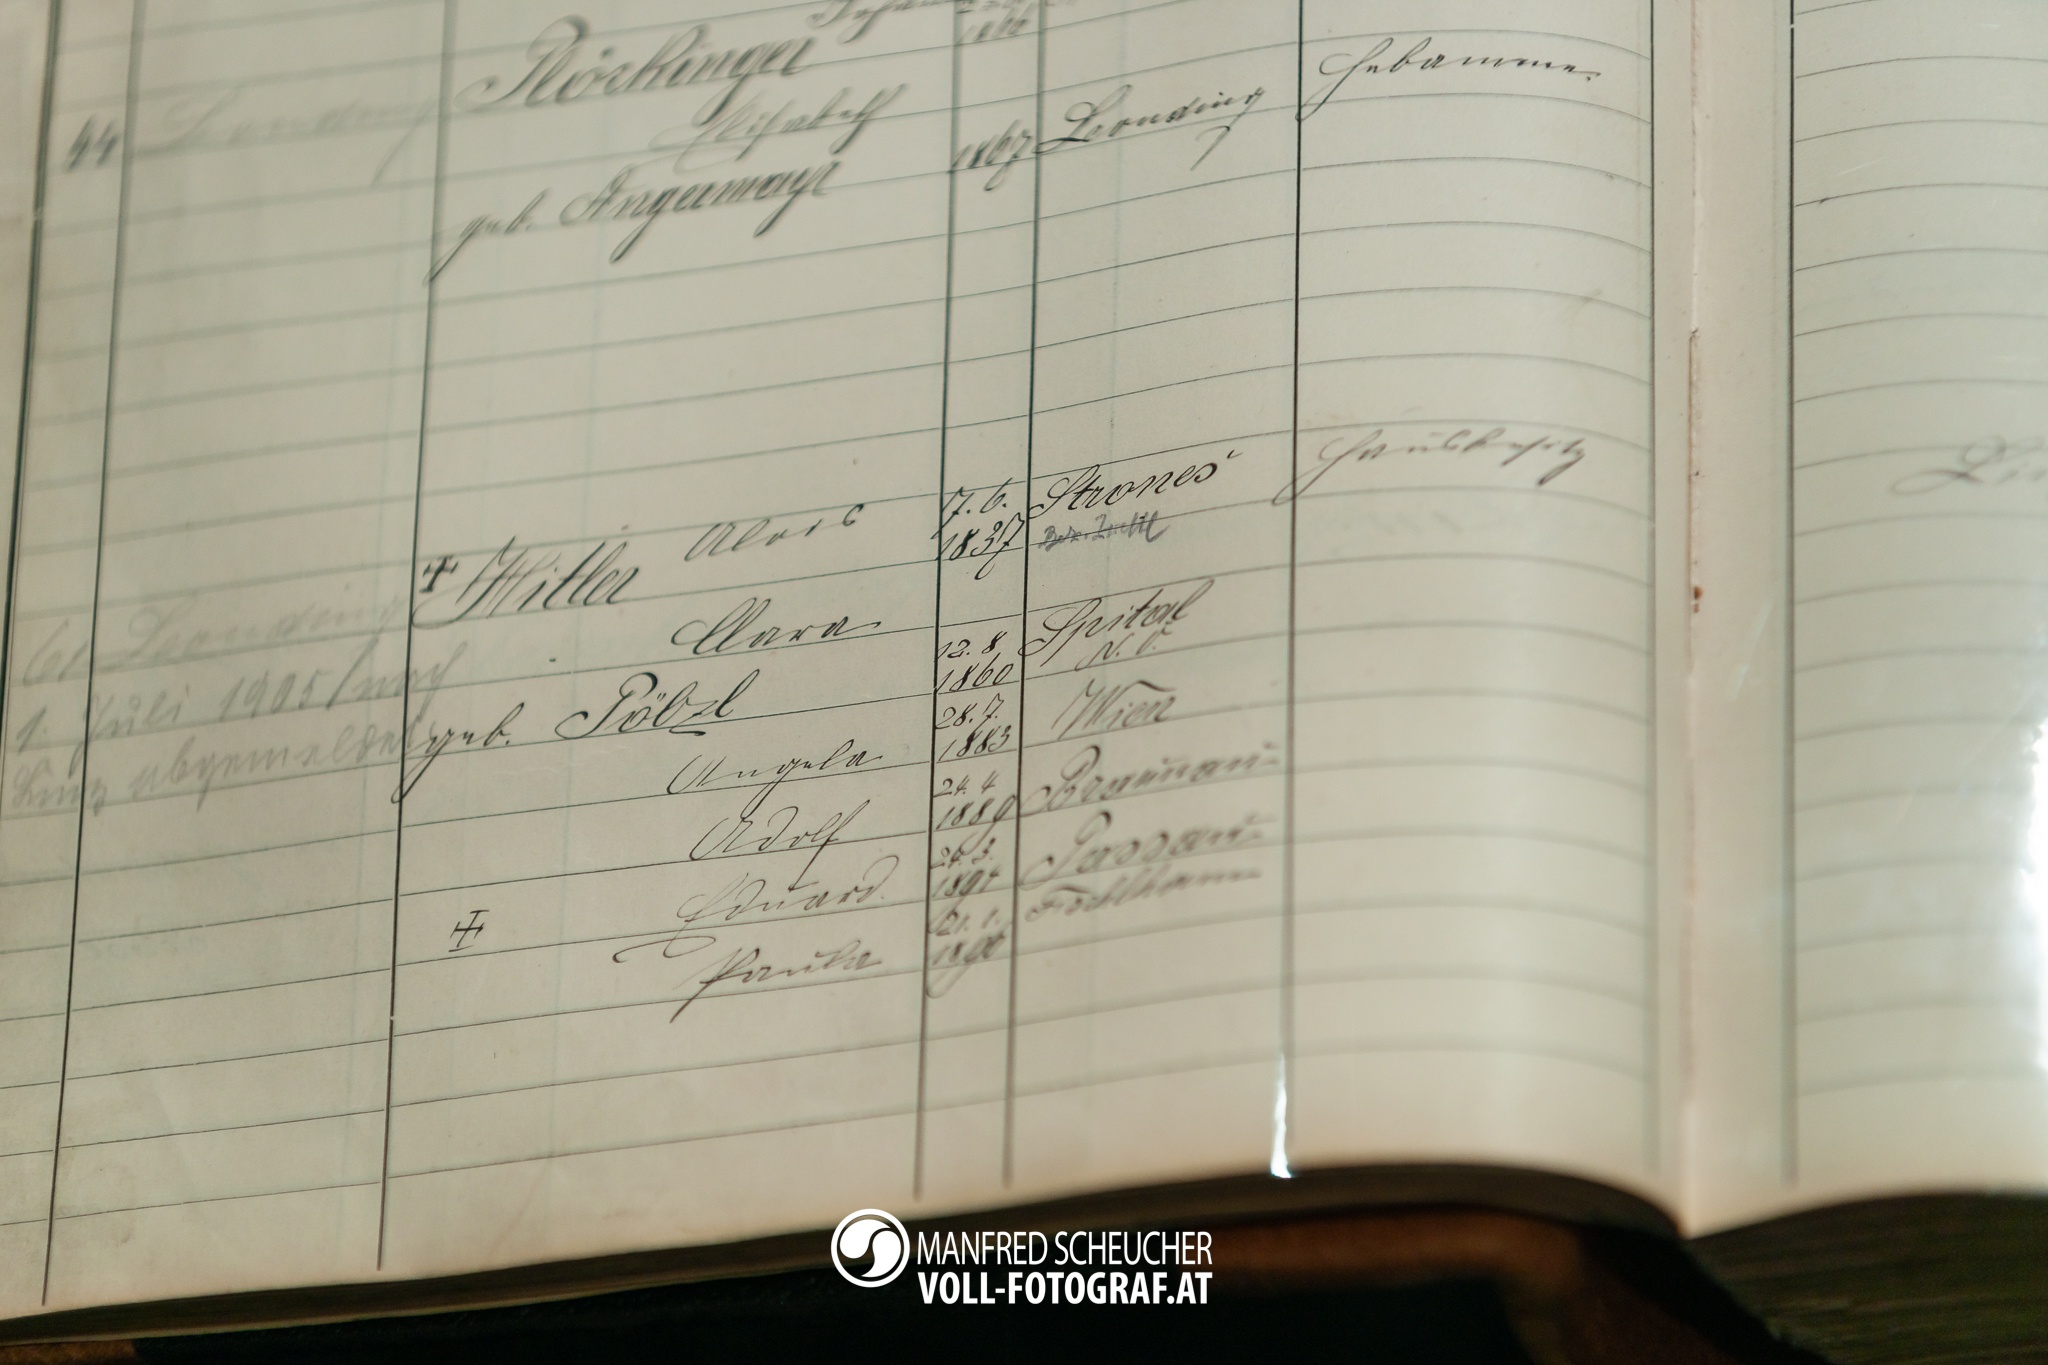 Plöckinger
1866
Hebamme.
44 Leonding
Elisabeth 1867 Leonding
geb. Angermayr
Hausbesitz
✝ Hitler Alois 7.6. 1837 Strones
Clara 12.8. 1860 Spital N.Ö.
61 Leonding
1. Juli 1905 / nach
Linz abgemeldet
geb. Pölzl
Angela 28.7. 1883 Wien
Adolf 24.4 1889 Braunau
✝ Eduard. 24.3. 1894 Passau
Paula 21.1. 1896 Fischlham
MANFRED SCHEUCHER
VOLL-FOTOGRAF.AT